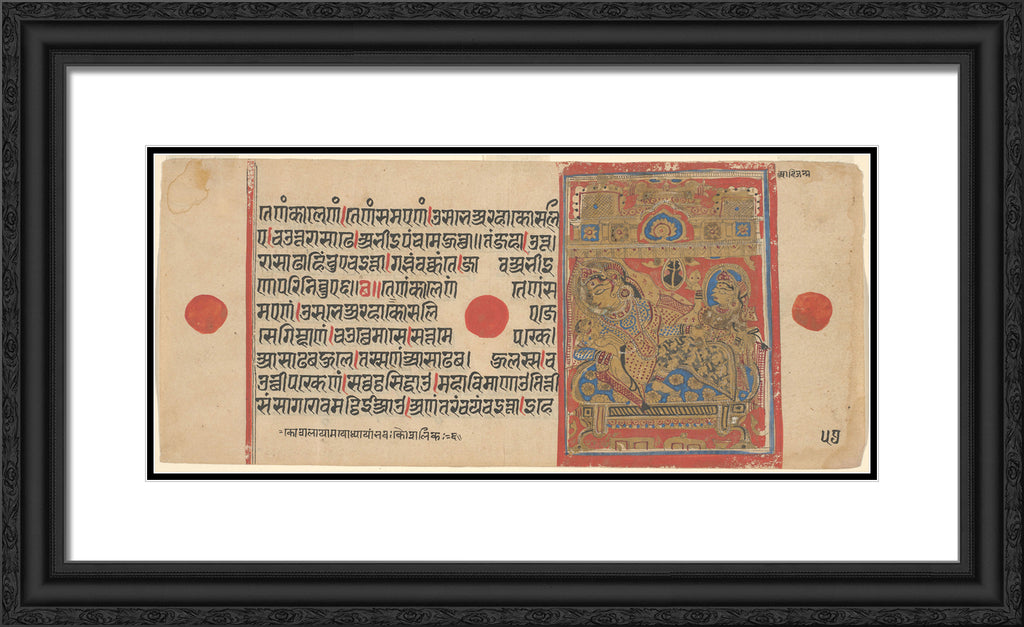 तेणं कालेणं।तेणं समएणं।उसभे अरहा कोसलि
ए।चउउत्तरासाढे।अभीइपंचमे हुत्था॥तं जहा।उत्त
रासाढाहिं चुए चइत्ता।गब्भं वक्कंते।जाव अभीइ
णा परिनिव्वुए॥छ॥तेणं कालेणं तेणं स
मएणं।उसभे अरहा कोसलिए जे
से गिम्हाणं।चउत्थे मासे।सत्तमे पक्खे।
आसाढबहुले।तस्स णं आसाढब।हुलस्स।च
उत्थीपक्खेणं।सव्वट्ठसिद्धाउ।महाविमाणाउ तित्ती
सं सागरोवमट्ठिईआउ।अणंतरं चयं चइत्ता।इहे